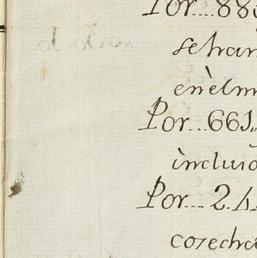 Por... 883
se han
en èl m
Por... 661,,
incluid
Por... 2.4
cosecha